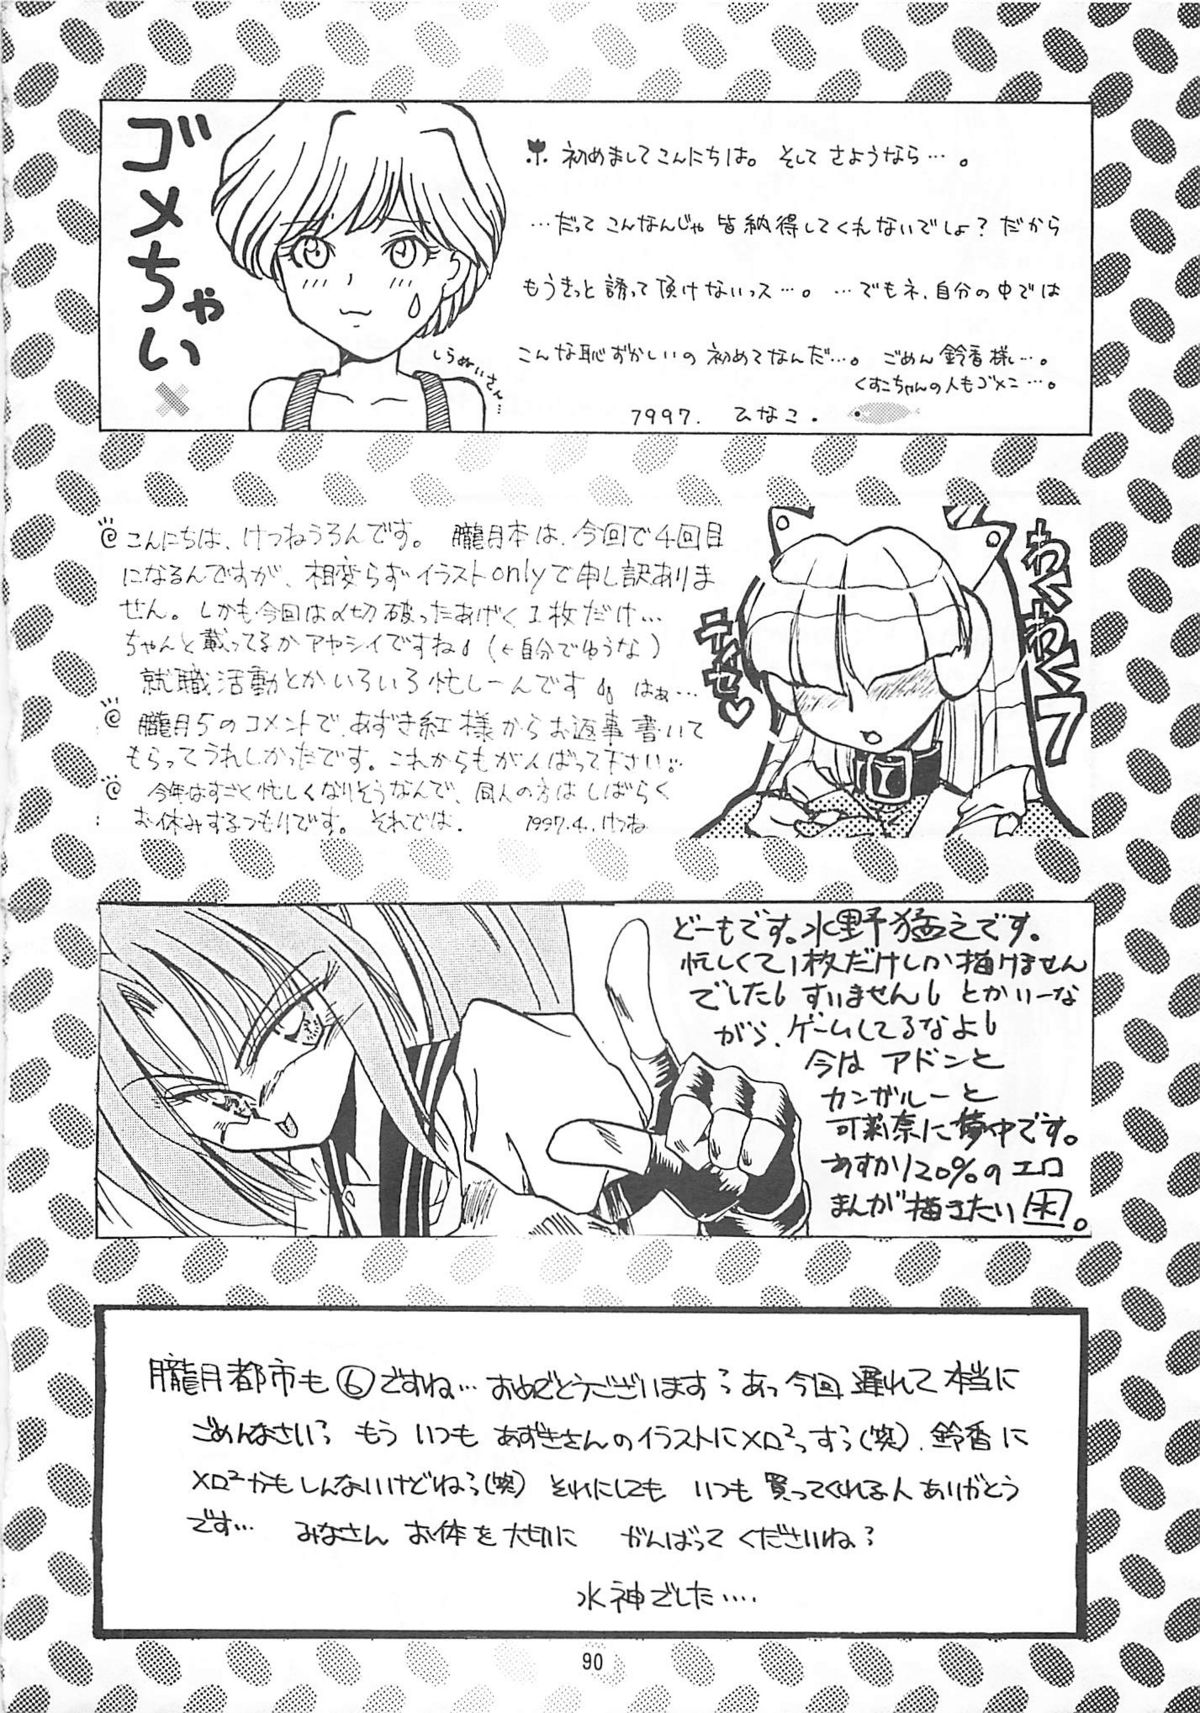 ゴメちゃい
初めましてこんにちは。そしてさようなら…。
…だってこんなんじゃ皆納得してくれないでしょ?だから
もうきっと誘って頂けないっス…。…でもネ、自分の中では
こんな恥ずかしいの初めてなんだ…。ごめん鈴香様…。
くすこちゃんの人もゴメン…。
1997. ひなこ.
こんにちは、けつねうろんです。朧月本は、今回で4回目
になるんですが、相変らずイラストonlyで申し訳ありま
せん。しかも今回は〆切破ったあげく1枚だけ…
ちゃんと載ってるかアヤシイですね (←自分でゆうな)
就職活動とかいろいろ忙しーんです はぁ…
朧月5のコメントで、あずき紅様からお返事書いて
もらってうれしかったです。これからもがんばって下さい
今年はすごく忙しくなりそうなんで、同人の方はしばらく
お休みするつもりです。それでは. 1997.4.けつね
わくわく7
ティセ♡
どーもです。水野猛之です。
忙しくて1枚だけしか描けません
でした すいません とかいーな
がら、ゲームしてるなよ
今は アドンと
カンガルーと
可莉奈に夢中です。
あすか120%のエロ
まんが描きたい困。
朧月都市も⑥ですね… おめでとうございます あっ今回遅れて本当に
ごめんなさい もう いつも あずきさんのイラストにメロ²っす(笑). 鈴香に
メロ²かもしんないけどね(笑) それにしても いつも 買ってくれる人ありがとう
です… みなさん お体を大切に がんばってくださいね
水神でした….
90